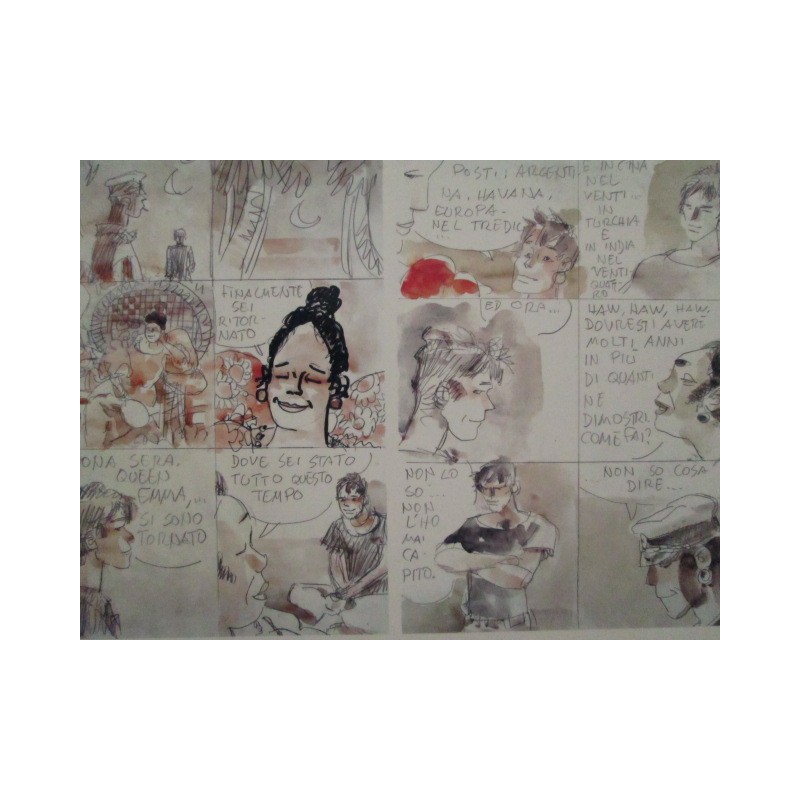 FINALMENTE
SEI
RITOR-
NATO
ONA SERA.
QUEEN
EMMA,...
SI SONO
TORNATO
DOVE SEI STATO
TUTTO QUESTO
TEMPO
POSTI: ARGENTI
NA, HAVANA,
EUROPA.
NEL TREDIC
...
E IN CINA
NEL
VENTI...
IN
TURCHIA
E
IN INDIA
NEL
VENTI
QUATT
RO
ED ORA...
HAW, HAW, HAW.
DOVRESTI AVERE
MOLTI ANNI
IN PIÙ
DI QUANTI
NE
DIMOSTRI.
COME FAI?
NON LO
SO...
NON
L'HO
MAI
CA-
PITO.
...NON SO COSA
DIRE....